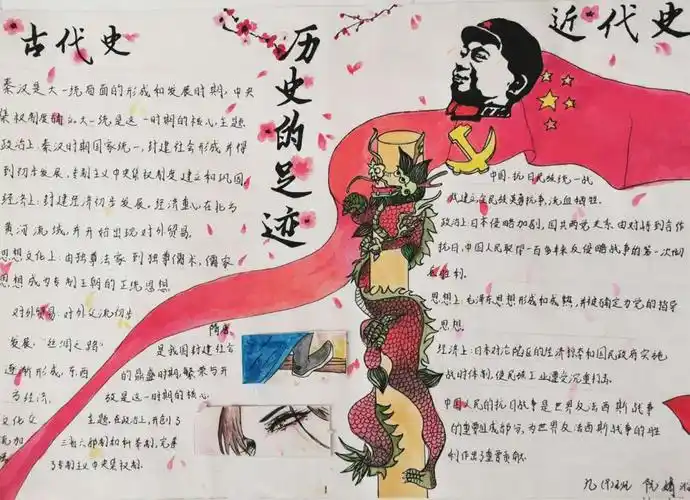 古代史
历史的足迹
近代史
秦汉是大一统局面的形成和发展时期,中央
集权制度的大一统是这一时期的核心主题
政治上:秦汉时期国家统一,封建社会形成并得
到初步发展,专制主义中央集权制度建立和巩固
经济上:封建经济初步发展,经济重心在北方
黄河流域,并开始出现对外贸易。
思想文化上:由独尊法家到独尊儒术,儒家
思想成为专制王朝的正统思想
对外贸易:对外交流初步
发展,"丝绸之路"
逐渐形成,东西
方经济,
文化交
流加
隋唐
是我国封建社会
的鼎盛时期,繁荣与开
放是这一时期的核心
主题,在政治上,开创了
三省六部制和科举制,完善
了专制主义中央集权制。
中国抗日民族统一战
线建立全民族英勇抗争,流血牺牲。
政治上:日本侵略加剧,国共两党关系由对峙到合作
抗日,中国人民取得一百多年来反侵略战争的第一次
胜利.
思想上:毛泽东思想形成和成熟,并被确定为党的指导
思想.
经济上:日本对占陷区的经济掠夺和国民政府实施
战时体制,使民族工业遭受沉重打击.
中国人民的抗日战争是世界反法西斯战争
的重要组成部分,为世界反法西斯战争的胜
利作出了重要贡献.